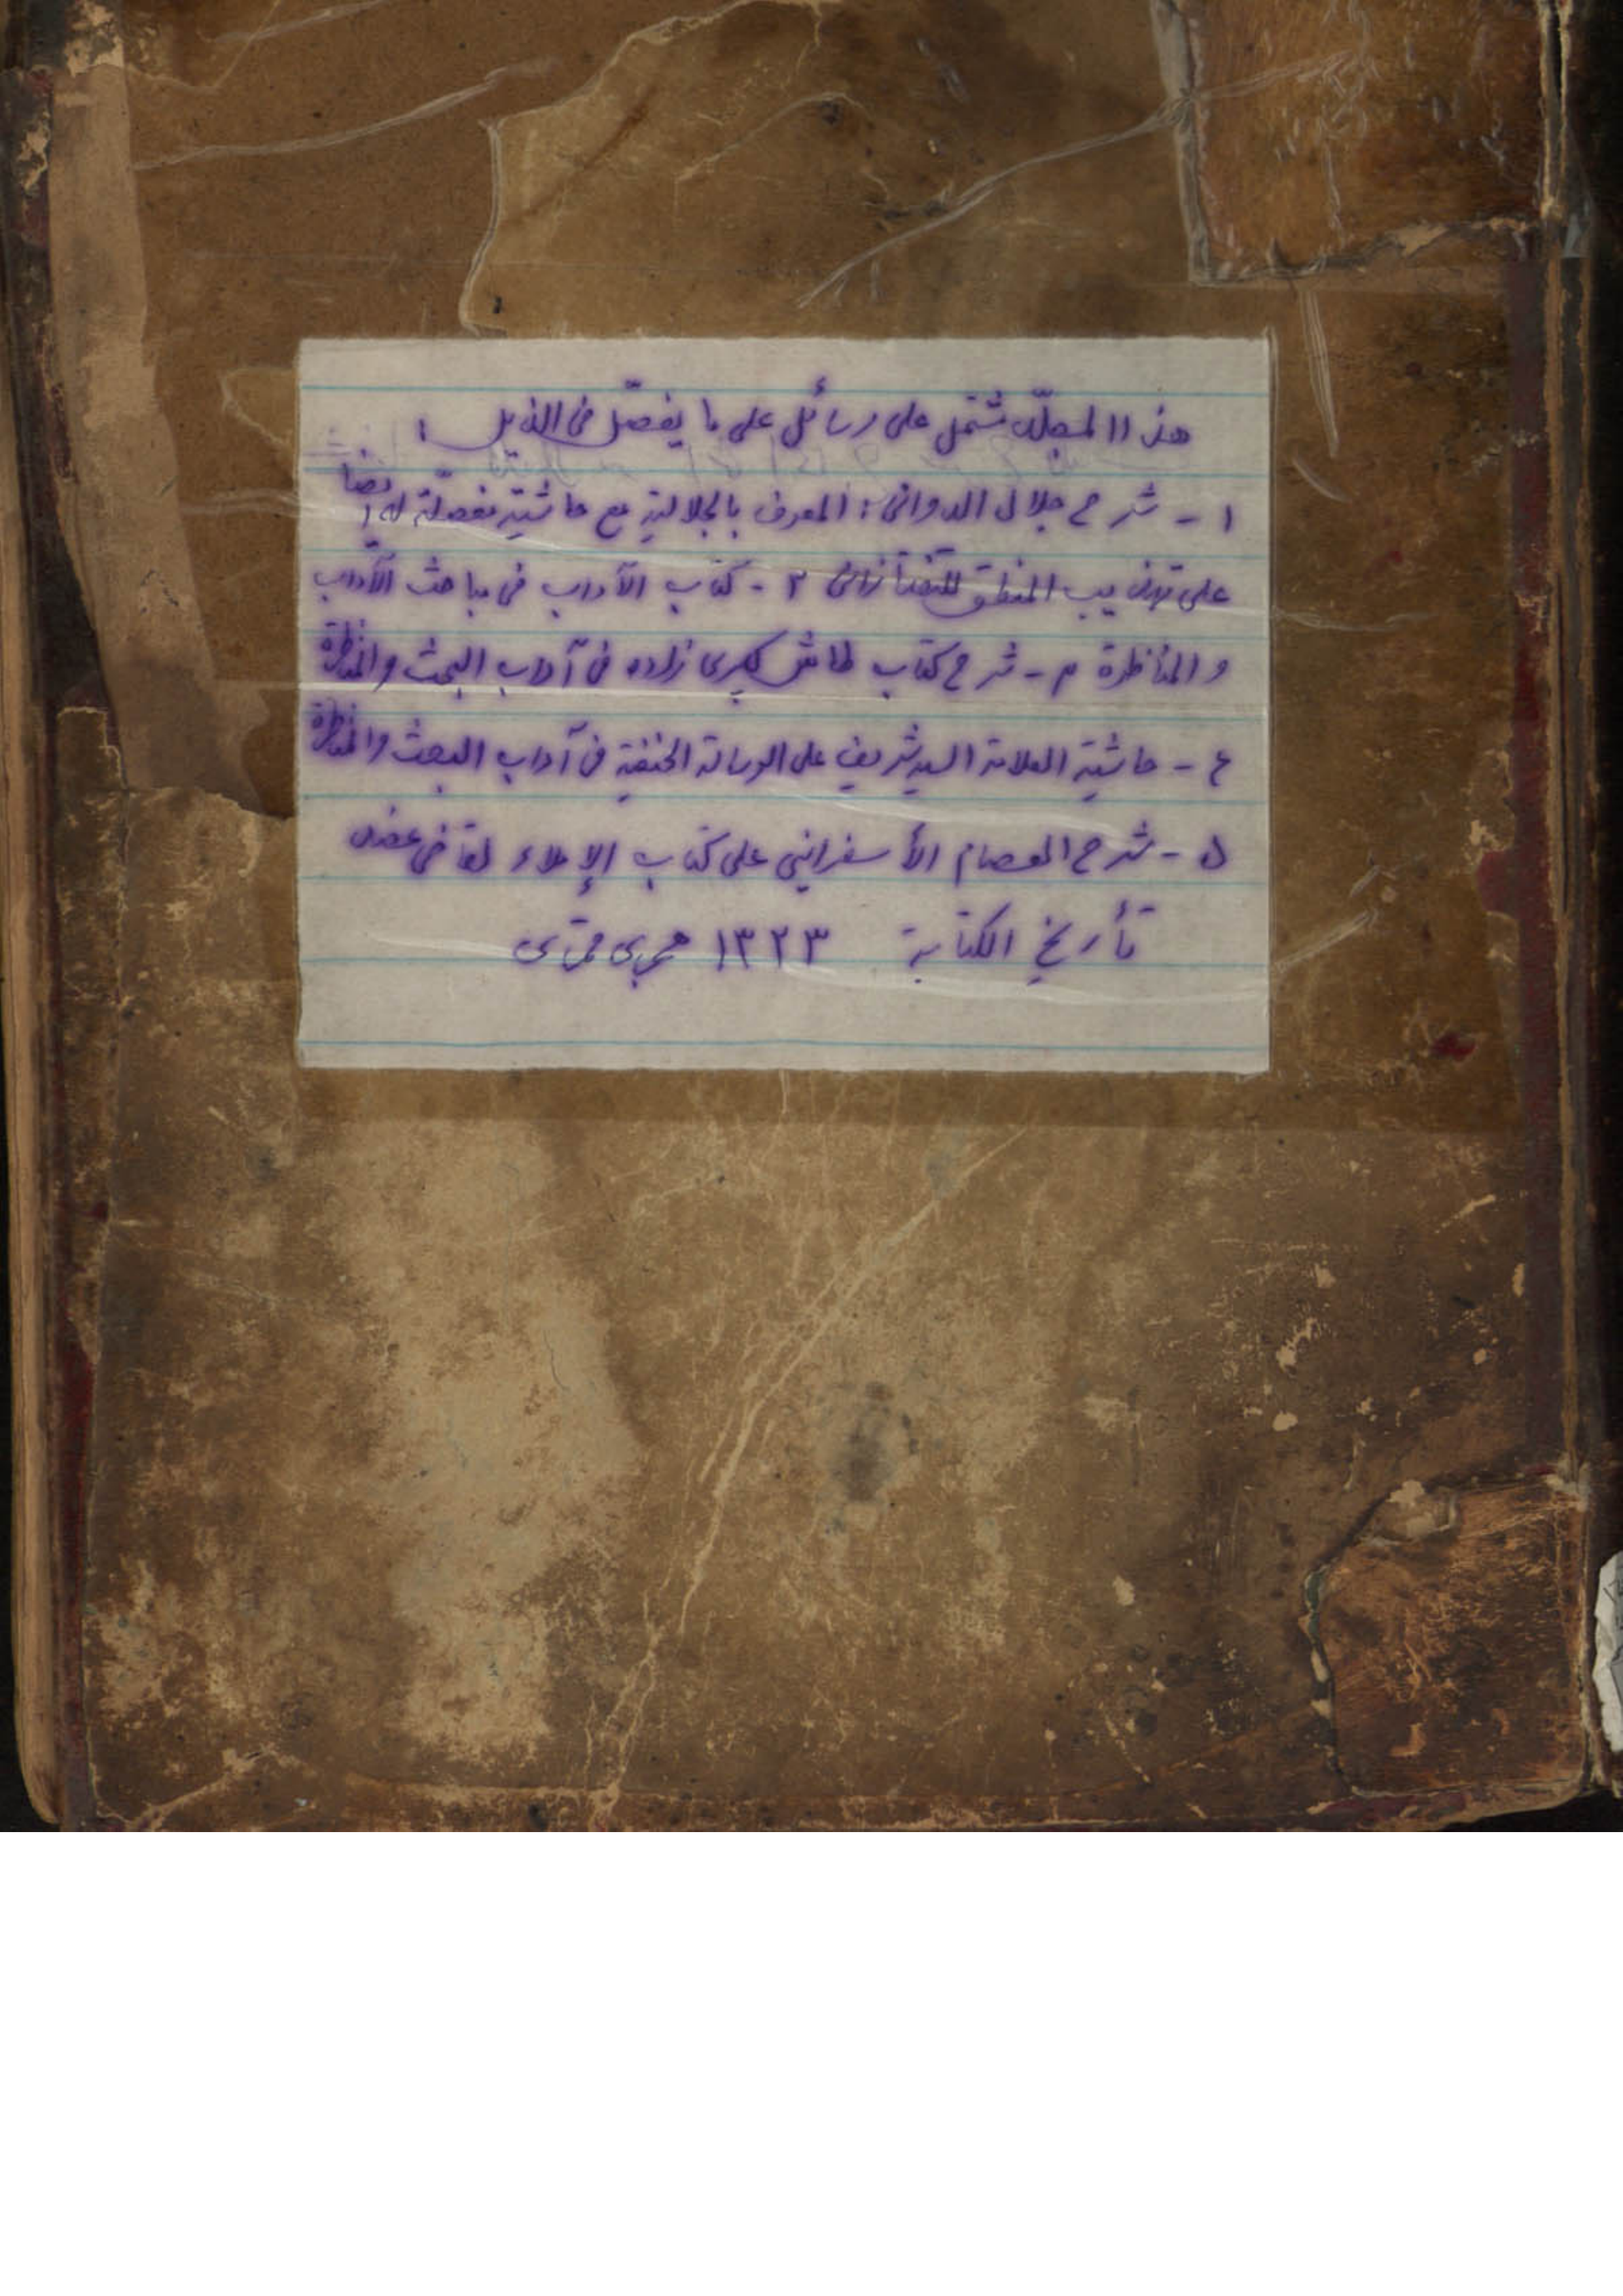 هذا المجلّد تشتمل على رسائل على ما يفصّل فى الذيل :
١ - شرح جلال الدوانى : المعرف بالجلالية مع حاشية مفصلّة له ايضا
على تهذيب المنطق للتفتازانى ٢ - كتاب الآداب فى مباحث الآداب
و المناظرة ٣ - شرح كتاب طاش كبرى زاده فى آداب البحث والمناظرة
٤ - حاشية العلامة السيد شريف على الرسالة الحنفية فى آداب البحث والمناظرة
٥ - شرح العصام الأسفرانيي على كتاب الإملاء لقاضى عضد
تأريخ الكتابة ١٣٢٣ هجرى قمرى